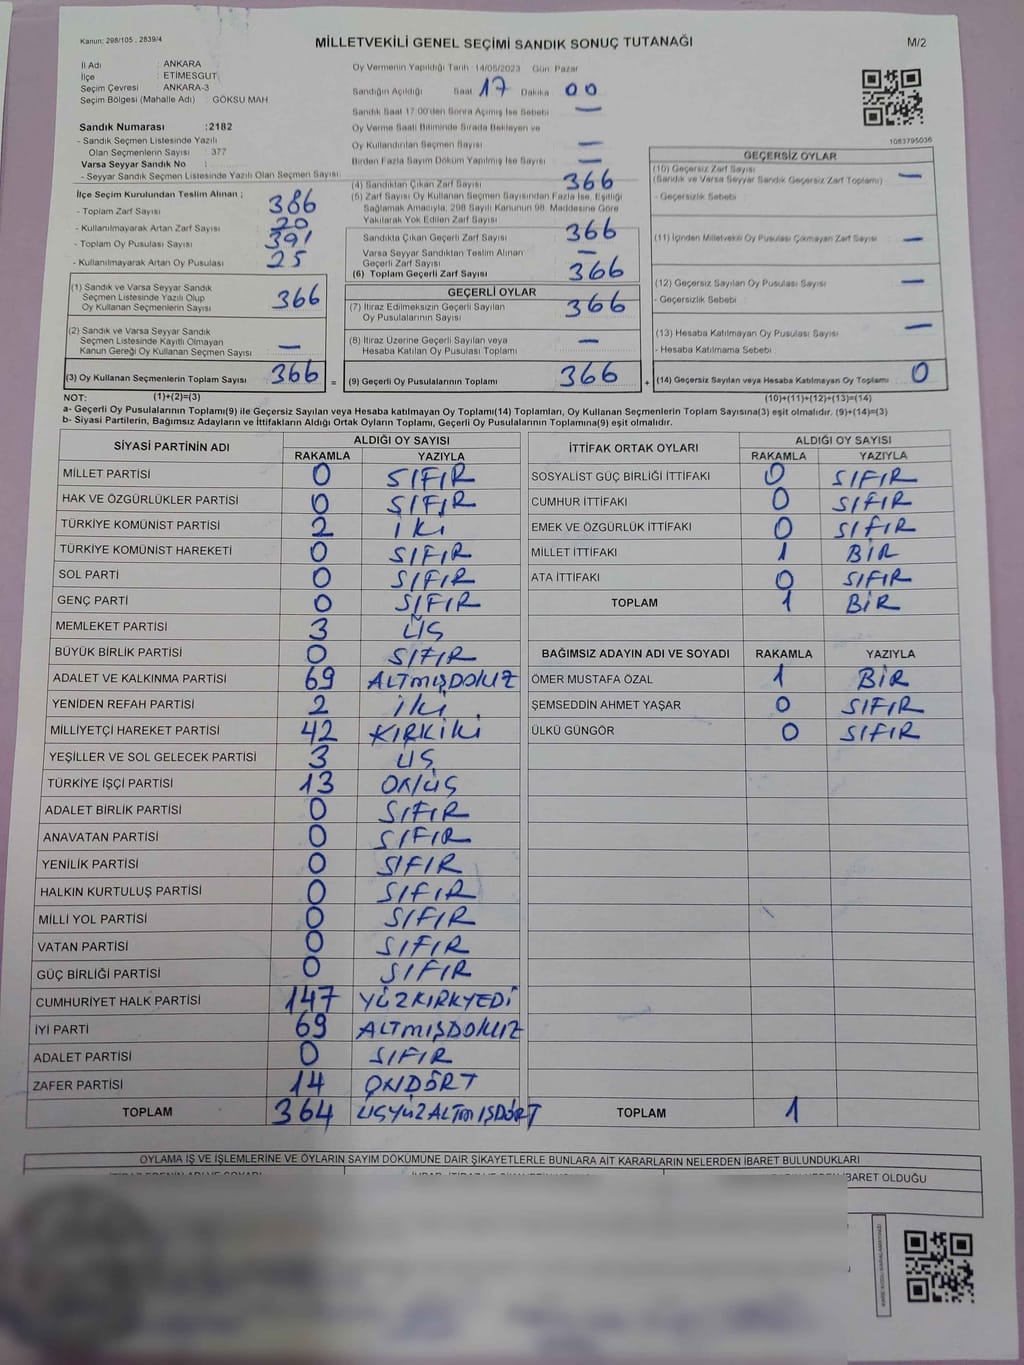 Kanun: 298/105 , 2839/4
MİLLETVEKİLİ GENEL SEÇİMİ SANDIK SONUÇ TUTANAĞI
M/2
İl Adı : ANKARA
İlçe : ETİMESGUT
Seçim Çevresi : ANKARA-3
Seçim Bölgesi (Mahalle Adı) : GÖKSU MAH
Sandık Numarası :2182
- Sandık Seçmen Listesinde Yazılı
Olan Seçmenlerin Sayısı : 377
Varsa Seyyar Sandık No :
- Seyyar Sandık Seçmen Listesinde Yazılı Olan Seçmen Sayısı:
Oy Vermenin Yapıldığı Tarih :14/05/2023 Gün: Pazar
Sandığın Açıldığı Saat 17 Dakika 00
Sandık Saat 17:00'den Sonra Açılmış İse Sebebi —
Oy Verme Saati Bitiminde Sırada Bekleyen ve
Oy Kullandırılan Seçmen Sayısı —
Birden Fazla Sayım Döküm Yapılmış İse Sayısı —
1083795036
İlçe Seçim Kurulundan Teslim Alınan ;
- Toplam Zarf Sayısı 386
- Kullanılmayarak Artan Zarf Sayısı 20
- Toplam Oy Pusulası Sayısı 391
- Kullanılmayarak Artan Oy Pusulası 25
(1) Sandık ve Varsa Seyyar Sandık
Seçmen Listesinde Yazılı Olup
Oy Kullanan Seçmenlerin Sayısı 366
(2) Sandık ve Varsa Seyyar Sandık
Seçmen Listesinde Kayıtlı Olmayan
Kanun Gereği Oy Kullanan Seçmen Sayısı —
(3) Oy Kullanan Seçmenlerin Toplam Sayısı 366 =
(4) Sandıktan Çıkan Zarf Sayısı 366
(5) Zarf Sayısı Oy Kullanan Seçmen Sayısından Fazla İse, Eşitliği
Sağlamak Amacıyla, 298 Sayılı Kanunun 98. Maddesine Göre
Yakılarak Yok Edilen Zarf Sayısı
Sandıkta Çıkan Geçerli Zarf Sayısı 366
Varsa Seyyar Sandıktan Teslim Alınan
Geçerli Zarf Sayısı —
(6) Toplam Geçerli Zarf Sayısı 366
GEÇERLİ OYLAR
(7) İtiraz Edilmeksizin Geçerli Sayılan
Oy Pusulalarının Sayısı 366
(8) İtiraz Üzerine Geçerli Sayılan veya
Hesaba Katılan Oy Pusulası Toplamı —
(9) Geçerli Oy Pusulalarının Toplamı 366 +
GEÇERSİZ OYLAR
(10) Geçersiz Zarf Sayısı
(Sandık ve Varsa Seyyar Sandık Geçersiz Zarf Toplamı) —
- Geçersizlik Sebebi :
(11) İçinden Milletvekili Oy Pusulası Çıkmayan Zarf Sayısı —
(12) Geçersiz Sayılan Oy Pusulası Sayısı —
- Geçersizlik Sebebi :
(13) Hesaba Katılmayan Oy Pusulası Sayısı —
- Hesaba Katılmama Sebebi :
(14) Geçersiz Sayılan veya Hesaba Katılmayan Oy Toplamı 0
NOT: (1)+(2)=(3) (10)+(11)+(12)+(13)=(14)
a- Geçerli Oy Pusulalarının Toplamı(9) ile Geçersiz Sayılan veya Hesaba katılmayan Oy Toplamı(14) Toplamları, Oy Kullanan Seçmenlerin Toplam Sayısına(3) eşit olmalıdır. (9)+(14)=(3)
b- Siyasi Partilerin, Bağımsız Adayların ve İttifakların Aldığı Ortak Oyların Toplamı, Geçerli Oy Pusulalarının Toplamına(9) eşit olmalıdır.
SİYASİ PARTİNİN ADI ALDIĞI OY SAYISI
RAKAMLA YAZIYLA
MİLLET PARTİSİ 0 SIFIR
HAK VE ÖZGÜRLÜKLER PARTİSİ 0 SIFIR
TÜRKİYE KOMÜNİST PARTİSİ 2 İKİ
TÜRKİYE KOMÜNİST HAREKETİ 0 SIFIR
SOL PARTİ 0 SIFIR
GENÇ PARTİ 0 SIFIR
MEMLEKET PARTİSİ 3 ÜÇ
BÜYÜK BİRLİK PARTİSİ 0 SIFIR
ADALET VE KALKINMA PARTİSİ 69 ALTMIŞDOKUZ
YENİDEN REFAH PARTİSİ 2 İKİ
MİLLİYETÇİ HAREKET PARTİSİ 42 KIRKİKİ
YEŞİLLER VE SOL GELECEK PARTİSİ 3 ÜÇ
TÜRKİYE İŞÇİ PARTİSİ 13 ONÜÇ
ADALET BİRLİK PARTİSİ 0 SIFIR
ANAVATAN PARTİSİ 0 SIFIR
YENİLİK PARTİSİ 0 SIFIR
HALKIN KURTULUŞ PARTİSİ 0 SIFIR
MİLLİ YOL PARTİSİ 0 SIFIR
VATAN PARTİSİ 0 SIFIR
GÜÇ BİRLİĞİ PARTİSİ 0 SIFIR
CUMHURİYET HALK PARTİSİ 147 YÜZKIRKYEDİ
İYİ PARTİ 69 ALTMIŞDOKUZ
ADALET PARTİSİ 0 SIFIR
ZAFER PARTİSİ 14 ONDÖRT
TOPLAM 364 ÜÇYÜZALTMIŞDÖRT
İTTİFAK ORTAK OYLARI ALDIĞI OY SAYISI
RAKAMLA YAZIYLA
SOSYALİST GÜÇ BİRLİĞİ İTTİFAKI 0 SIFIR
CUMHUR İTTİFAKI 0 SIFIR
EMEK VE ÖZGÜRLÜK İTTİFAKI 0 SIFIR
MİLLET İTTİFAKI 1 BİR
ATA İTTİFAKI 0 SIFIR
TOPLAM 1 BİR
BAĞIMSIZ ADAYIN ADI VE SOYADI RAKAMLA YAZIYLA
ÖMER MUSTAFA ÖZAL 1 BİR
ŞEMSEDDİN AHMET YAŞAR 0 SIFIR
ÜLKÜ GÜNGÖR 0 SIFIR
TOPLAM 1
OYLAMA İŞ VE İŞLEMLERİNE VE OYLARIN SAYIM DÖKÜMÜNE DAİR ŞİKAYETLERLE BUNLARA AİT KARARLARIN NELERDEN İBARET BULUNDUKLARI
İBARET OLDUĞU